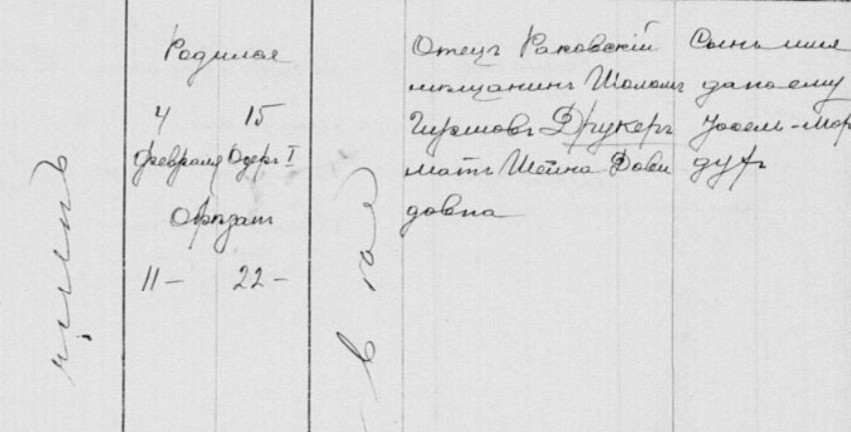 Родился
4 15
февраля Одерг I
Обрѣзант
11 – 22 –
Отецъ Раковскій
мѣщанинъ Шоломъ
Гиршовъ Друкеръ
мать Шейна Дови
довна
Сынъ имя
дано ему
Іосель-Мор
духъ